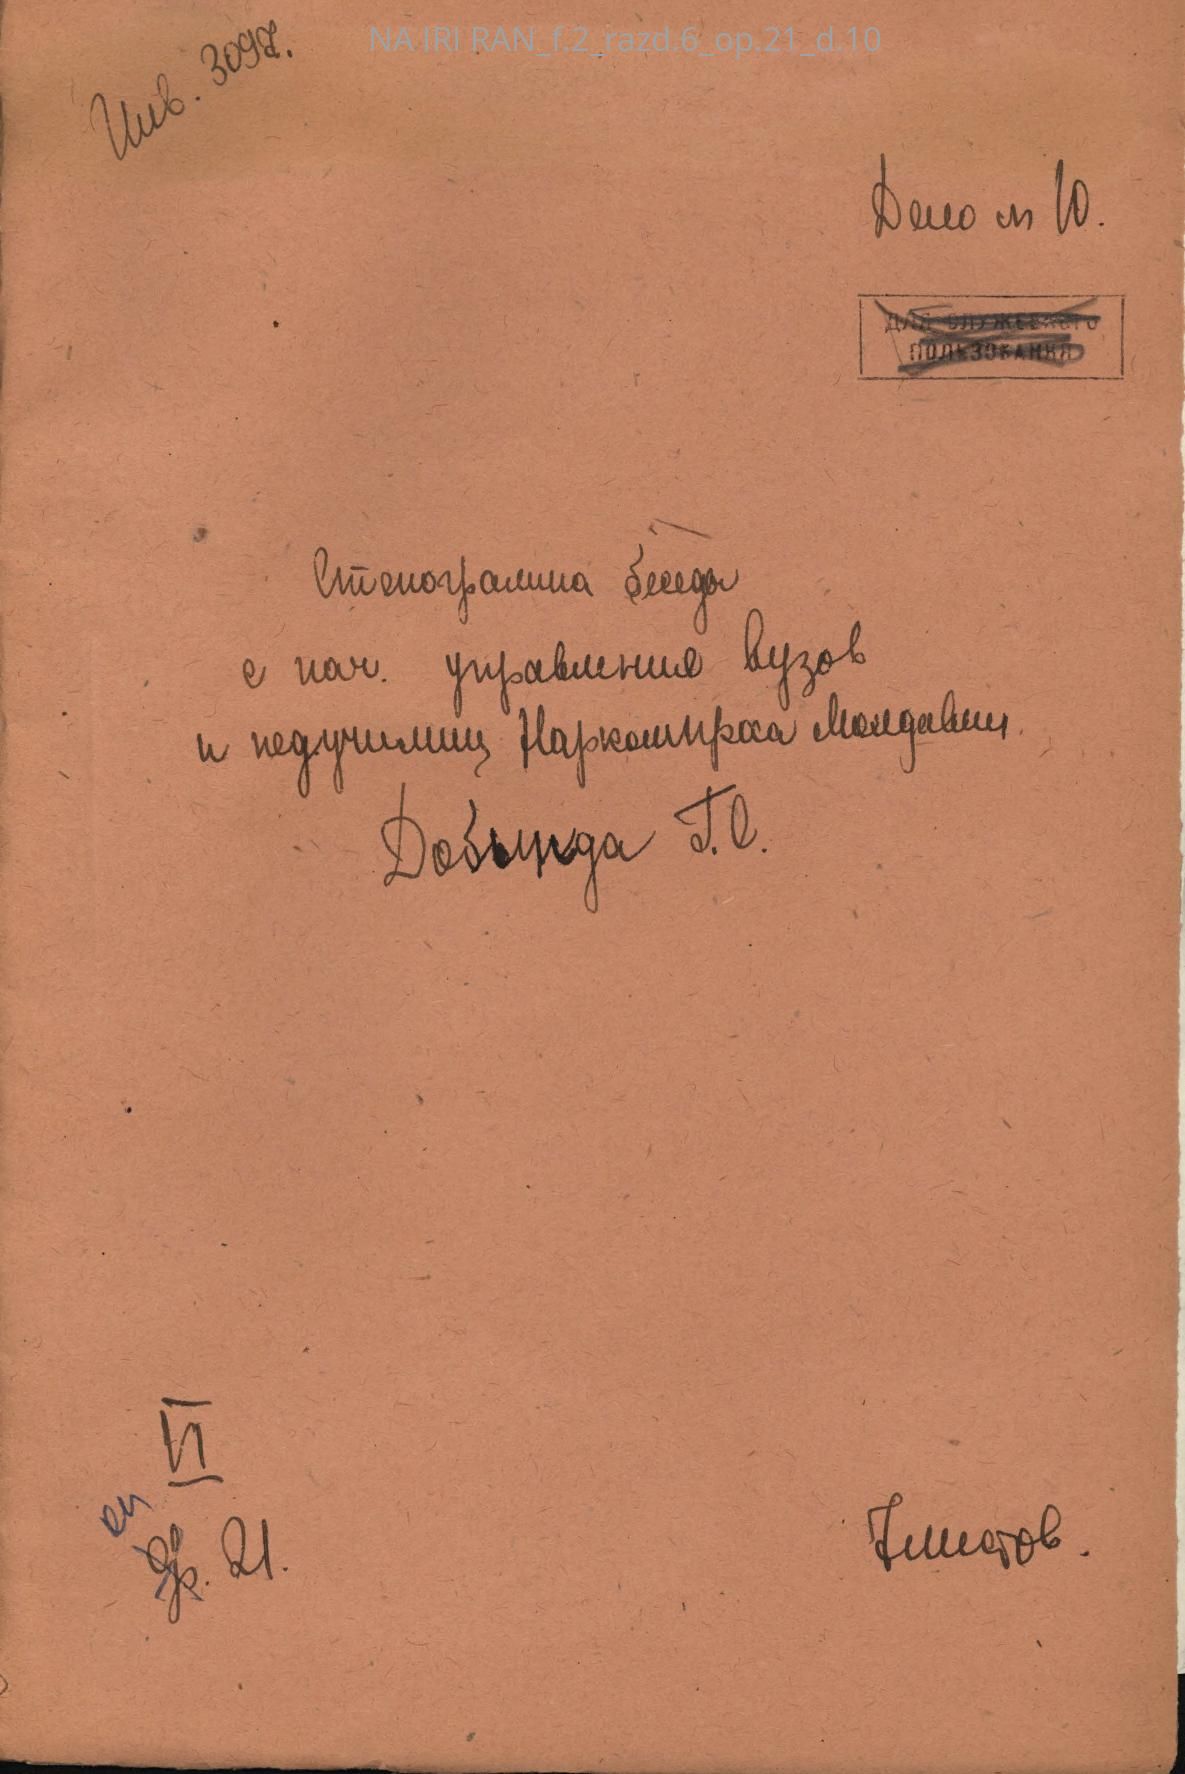 NA IRI RAN_f.2_razd.6_op.21_d.10
Инв. 3097.
Дело № 10.
ДЛЯ СЛУЖЕБНОГО
ПОЛЬЗОВАНИЯ
Стенограмма беседы
с нач. управления вузов
и педучилищ Наркомпроса Молдавии
Добында Г.С.
VI
оп
21.
7 листов.